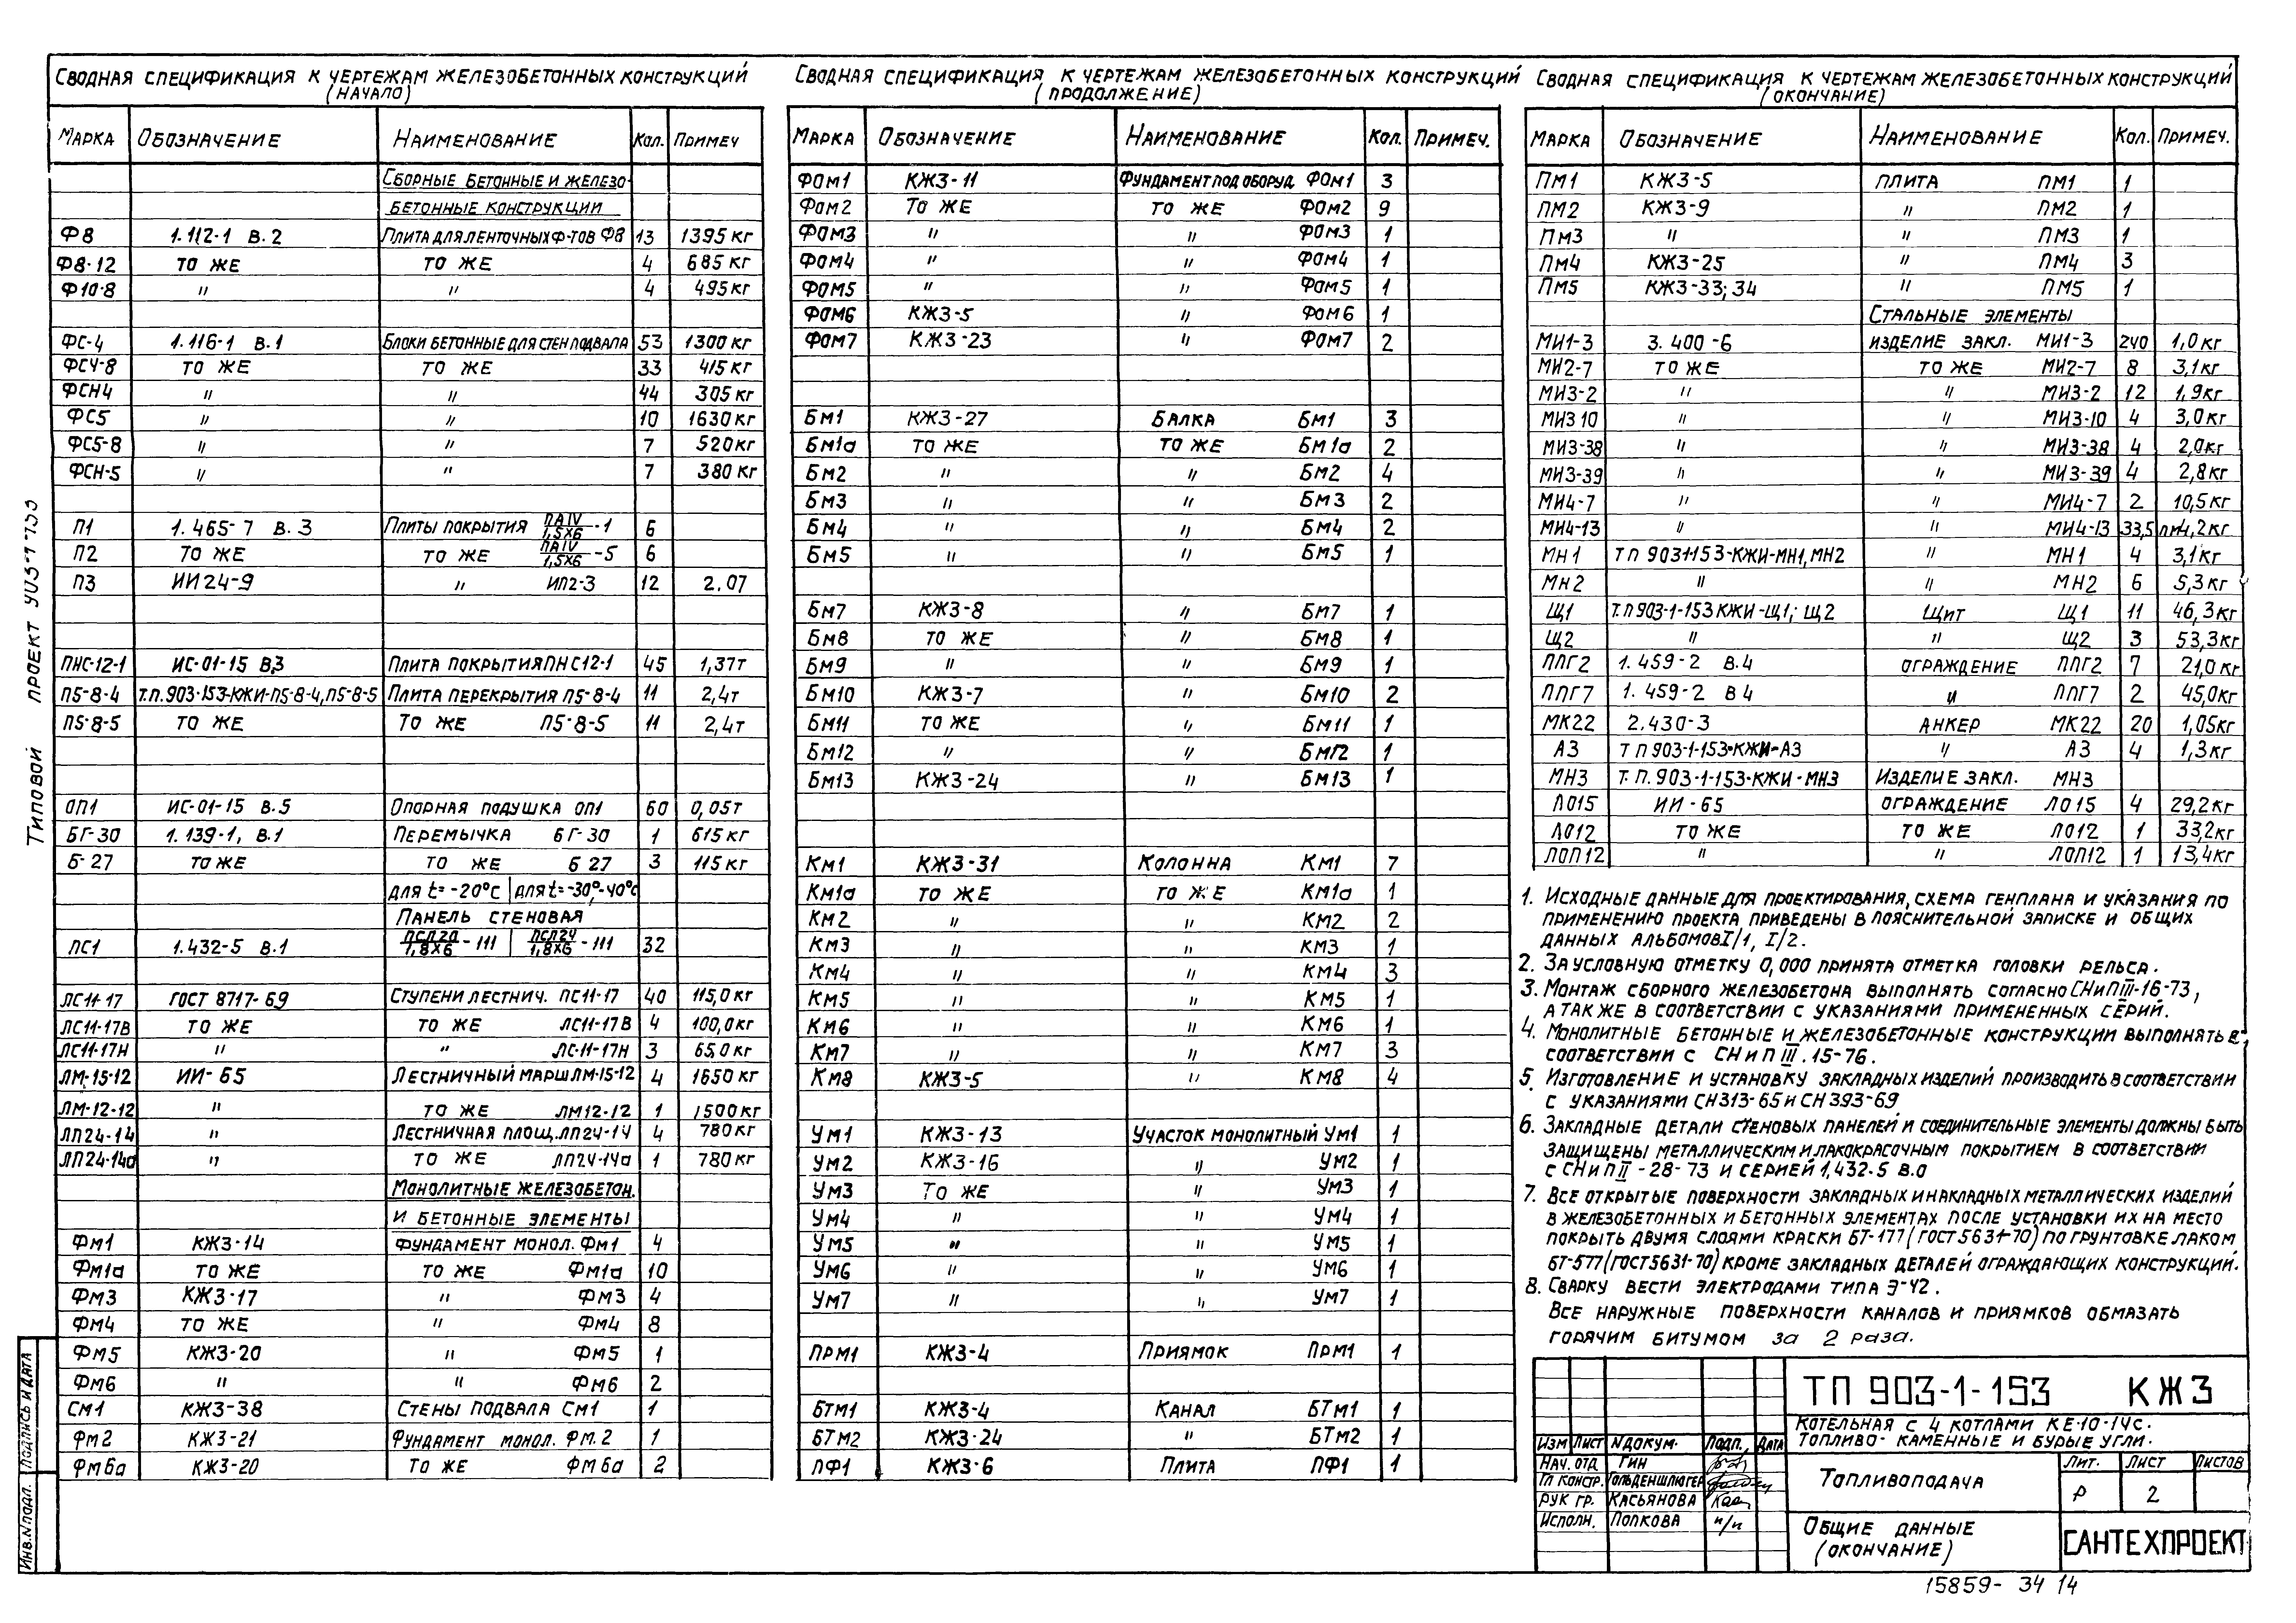 Сводная спецификация к чертежам железобетонных конструкций
(начало)
Марка Обозначение Наименование Кол. Примеч
Сборные бетонные и железо-
бетонные конструкции
Ф8 1.112-1 в.2 Плита для ленточных ф-тов Ф8 13 1395 кг
Ф8-12 то же то же 4 685 кг
Ф10-8 " " 4 495 кг
ФС-4 1.116-1 в.1 Блоки бетонные для стен подвала 53 1300 кг
ФС4-8 то же то же 33 415 кг
ФСН4 " " 44 305 кг
ФС5 " " 10 1630 кг
ФС5-8 " " 7 520 кг
ФСН-5 " " 7 380 кг
П1 1.465-7 в.3 Плиты покрытия ПАIV/1,5х6 -1 6
П2 то же то же ПАIV/1,5х6 -5 6
П3 ИИ24-9 " ИП2-3 12 2.07
ПНС-12-1 ИС-01-15 в.3 Плита покрытия ПНС12-1 45 1,37т
П5-8-4 Т.п.903-153-КЖИ-П5-8-4,П5-8-5 Плита перекрытия П5-8-4 11 2,4т
П5-8-5 то же то же П5-8-5 11 2,4т
ОП1 ИС-01-15 в.5 Опорная подушка ОП1 60 0,05т
БГ-30 1.139-1, в.1 Перемычка БГ-30 1 615 кг
Б-27 то же то же Б 27 3 115 кг
для t=-20°С | для t=-30°,-40°С
Панель стеновая
ПС1 1.432-5 в.1 ПСЛ20/1,8х6 -111 | ПСЛ24/1,8х6 -111 32
ЛС11-17 ГОСТ 8717-69 Ступени лестнич. ЛС11-17 40 115,0 кг
ЛС11-17В то же то же ЛС11-17В 4 100,0кг
ЛС11-17Н " " ЛС-11-17Н 3 65,0 кг
ЛМ-15-12 ИИ-65 Лестничный марш ЛМ-15-12 4 1650 кг
ЛМ-12-12 " то же ЛМ12-12 1 1500 кг
ЛП24-14 " Лестничная площ. ЛП24-14 4 780 кг
ЛП24-14а " то же ЛП24-14а 1 780 кг
Монолитные железобетон.
и бетонные элементы
Фм1 КЖ3-14 Фундамент монол. Фм1 4
Фм1а то же то же Фм1а 10
Фм3 КЖ3-17 " Фм3 4
Фм4 то же " Фм4 8
Фм5 КЖ3-20 " Фм5 1
Фм6 " " Фм6 2
См1 КЖ3-38 Стены подвала См1 1
Фм2 КЖ3-21 Фундамент монол. Фм.2 1
Фм6а КЖ3-20 то же Фм6а 2
Сводная спецификация к чертежам железобетонных конструкций
(продолжение)
Марка Обозначение Наименование Кол. Примеч.
Фом1 КЖ3-11 Фундамент под оборуд. Фом1 3
Фом2 То же то же Фом2 9
Фом3 " " Фом3 1
Фом4 " " Фом4 1
Фом5 " " Фом5 1
Фом6 КЖ3-5 " Фом6 1
Фом7 КЖ3-23 " Фом7 2
Бм1 КЖ3-27 Балка Бм1 3
Бм1а то же то же Бм1а 2
Бм2 " " Бм2 4
Бм3 " " Бм3 2
Бм4 " " Бм4 2
Бм5 " " Бм5 1
Бм7 КЖ3-8 " Бм7 1
Бм8 то же " Бм8 1
Бм9 " " Бм9 1
Бм10 КЖ3-7 " Бм10 2
Бм11 то же " Бм11 1
Бм12 " " Бм12 1
Бм13 КЖ3-24 " Бм13 1
Км1 КЖ3-31 Колонна Км1 7
Км1а то же то же Км1а 1
Км2 " " Км2 2
Км3 " " Км3 1
Км4 " " Км4 3
Км5 " " Км5 1
Км6 " " Км6 1
Км7 " " Км7 3
Км8 КЖ3-5 " Км8 4
Ум1 КЖ3-13 Участок монолитный Ум1 1
Ум2 КЖ3-16 " Ум2 1
Ум3 То же " Ум3 1
Ум4 " " Ум4 1
Ум5 " " Ум5 1
Ум6 " " Ум6 1
Ум7 " " Ум7 1
Прм1 КЖ3-4 Приямок Прм1 1
БТм1 КЖ3-4 Канал БТм1 1
БТм2 КЖ3-24 " БТм2 1
ПФ1 КЖ3-6 Плита ПФ1 1
Сводная спецификация к чертежам железобетонных конструкций
(окончание)
Марка Обозначение Наименование Кол. Примеч.
Пм1 КЖ3-5 Плита Пм1 1
Пм2 КЖ3-9 " Пм2 1
Пм3 " " Пм3 1
Пм4 КЖ3-25 " Пм4 3
Пм5 КЖ3-33; 34 " Пм5 1
Стальные элементы
МИ1-3 3.400-6 изделие закл. МИ1-3 240 1,0 кг
МИ2-7 то же то же МИ2-7 8 3,1кг
МИ3-2 " " МИ3-2 12 1,9кг
МИ3 10 " " МИ3-10 4 3,0кг
МИ3-38 " " МИ3-38 4 2,0кг
МИ3-39 " " МИ3-39 4 2,8кг
МИ4-7 " " МИ4-7 2 10,5кг
МИ4-13 " " МИ4-13 33,5 пм 4,2кг
МН1 ТП 903-1-153-КЖИ-МН1,МН2 " МН1 4 3,1кг
МН2 " " МН2 6 5,3кг
Щ1 Т.П 903-1-153 КЖИ-Щ1; Щ2 Щит Щ1 11 46,3кг
Щ2 " " Щ2 3 53,3кг
ППГ2 1.459-2 в.4 ограждение ППГ2 7 21,0кг
ППГ7 1.459-2 в 4 " ППГ7 2 45,0кг
МК22 2.430-3 Анкер МК22 20 1,05кг
А3 ТП 903-1-153-КЖИ-А3 " А3 4 1,3кг
МН3 Т.П.903-1-153-КЖИ-МН3 Изделие закл. МН3
ЛО15 ИИ-65 ограждение ЛО15 4 29,2кг
ЛО12 то же то же ЛО12 1 33,2кг
ЛОП12 " " ЛОП12 1 13,4кг
1. Исходные данные для проектирования, схема генплана и указания по
применению проекта приведены в пояснительной записке и общих
данных альбомов I/1, I/2.
2. За условную отметку 0,000 принята отметка головки рельса.
3. Монтаж сборного железобетона выполнять согласно СНиП III-16-73,
а также в соответствии с указаниями примененных серий.
4. Монолитные бетонные и железобетонные конструкции выполнять в
соответствии с СНиП III.15-76.
5. Изготовление и установку закладных изделий производить в соответствии
с указаниями СН313-65 и СН393-69
6. Закладные детали стеновых панелей и соединительные элементы должны быть
защищены металлическим и лакокрасочным покрытием в соответствии
с СНиП II-28-73 и серией 1,432-5 в.0
7. Все открытые поверхности закладных и накладных металлических изделий
в железобетонных и бетонных элементах после установки их на место
покрыть двумя слоями краски БТ-177 (ГОСТ 5631-70) по грунтовке лаком
БТ-577 (ГОСТ 5631-70) кроме закладных деталей ограждающих конструкций.
8. Сварку вести электродами типа Э-42.
Все наружные поверхности каналов и приямков обмазать
горячим битумом за 2 раза.
ТП 903-1-153 КЖ3
Котельная с 4 котлами КЕ-10-14с.
Топливо- каменные и бурые угли.
Изм Лист Nдокум. Подп. Дата
Нач. отд Гин
Гл констр. Гольденшлюгер
Рук гр. Касьянова
Исполн. Попкова п/п
Топливоподача
Лит. Лист Листов
Р 2
Общие данные
(окончание)
САНТЕХПРОЕКТ
15859- 34 14
Типовой проект
Подпись и дата
Инв.Nподл.